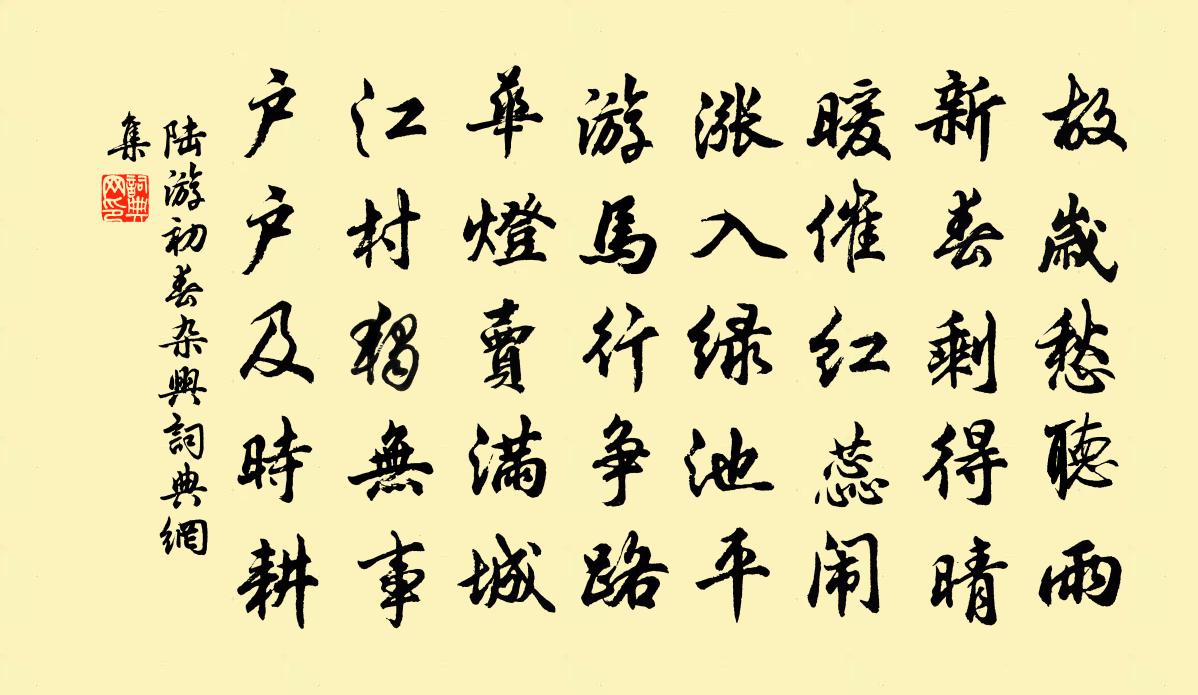 故歲愁聽雨
新春剩得晴
暖催紅蕊闹
漲入绿池平
游馬行争路
華燈賣滿城
江村獨無事
户户及時耕
陆游初春杂興詞典網
集
詞典
网印